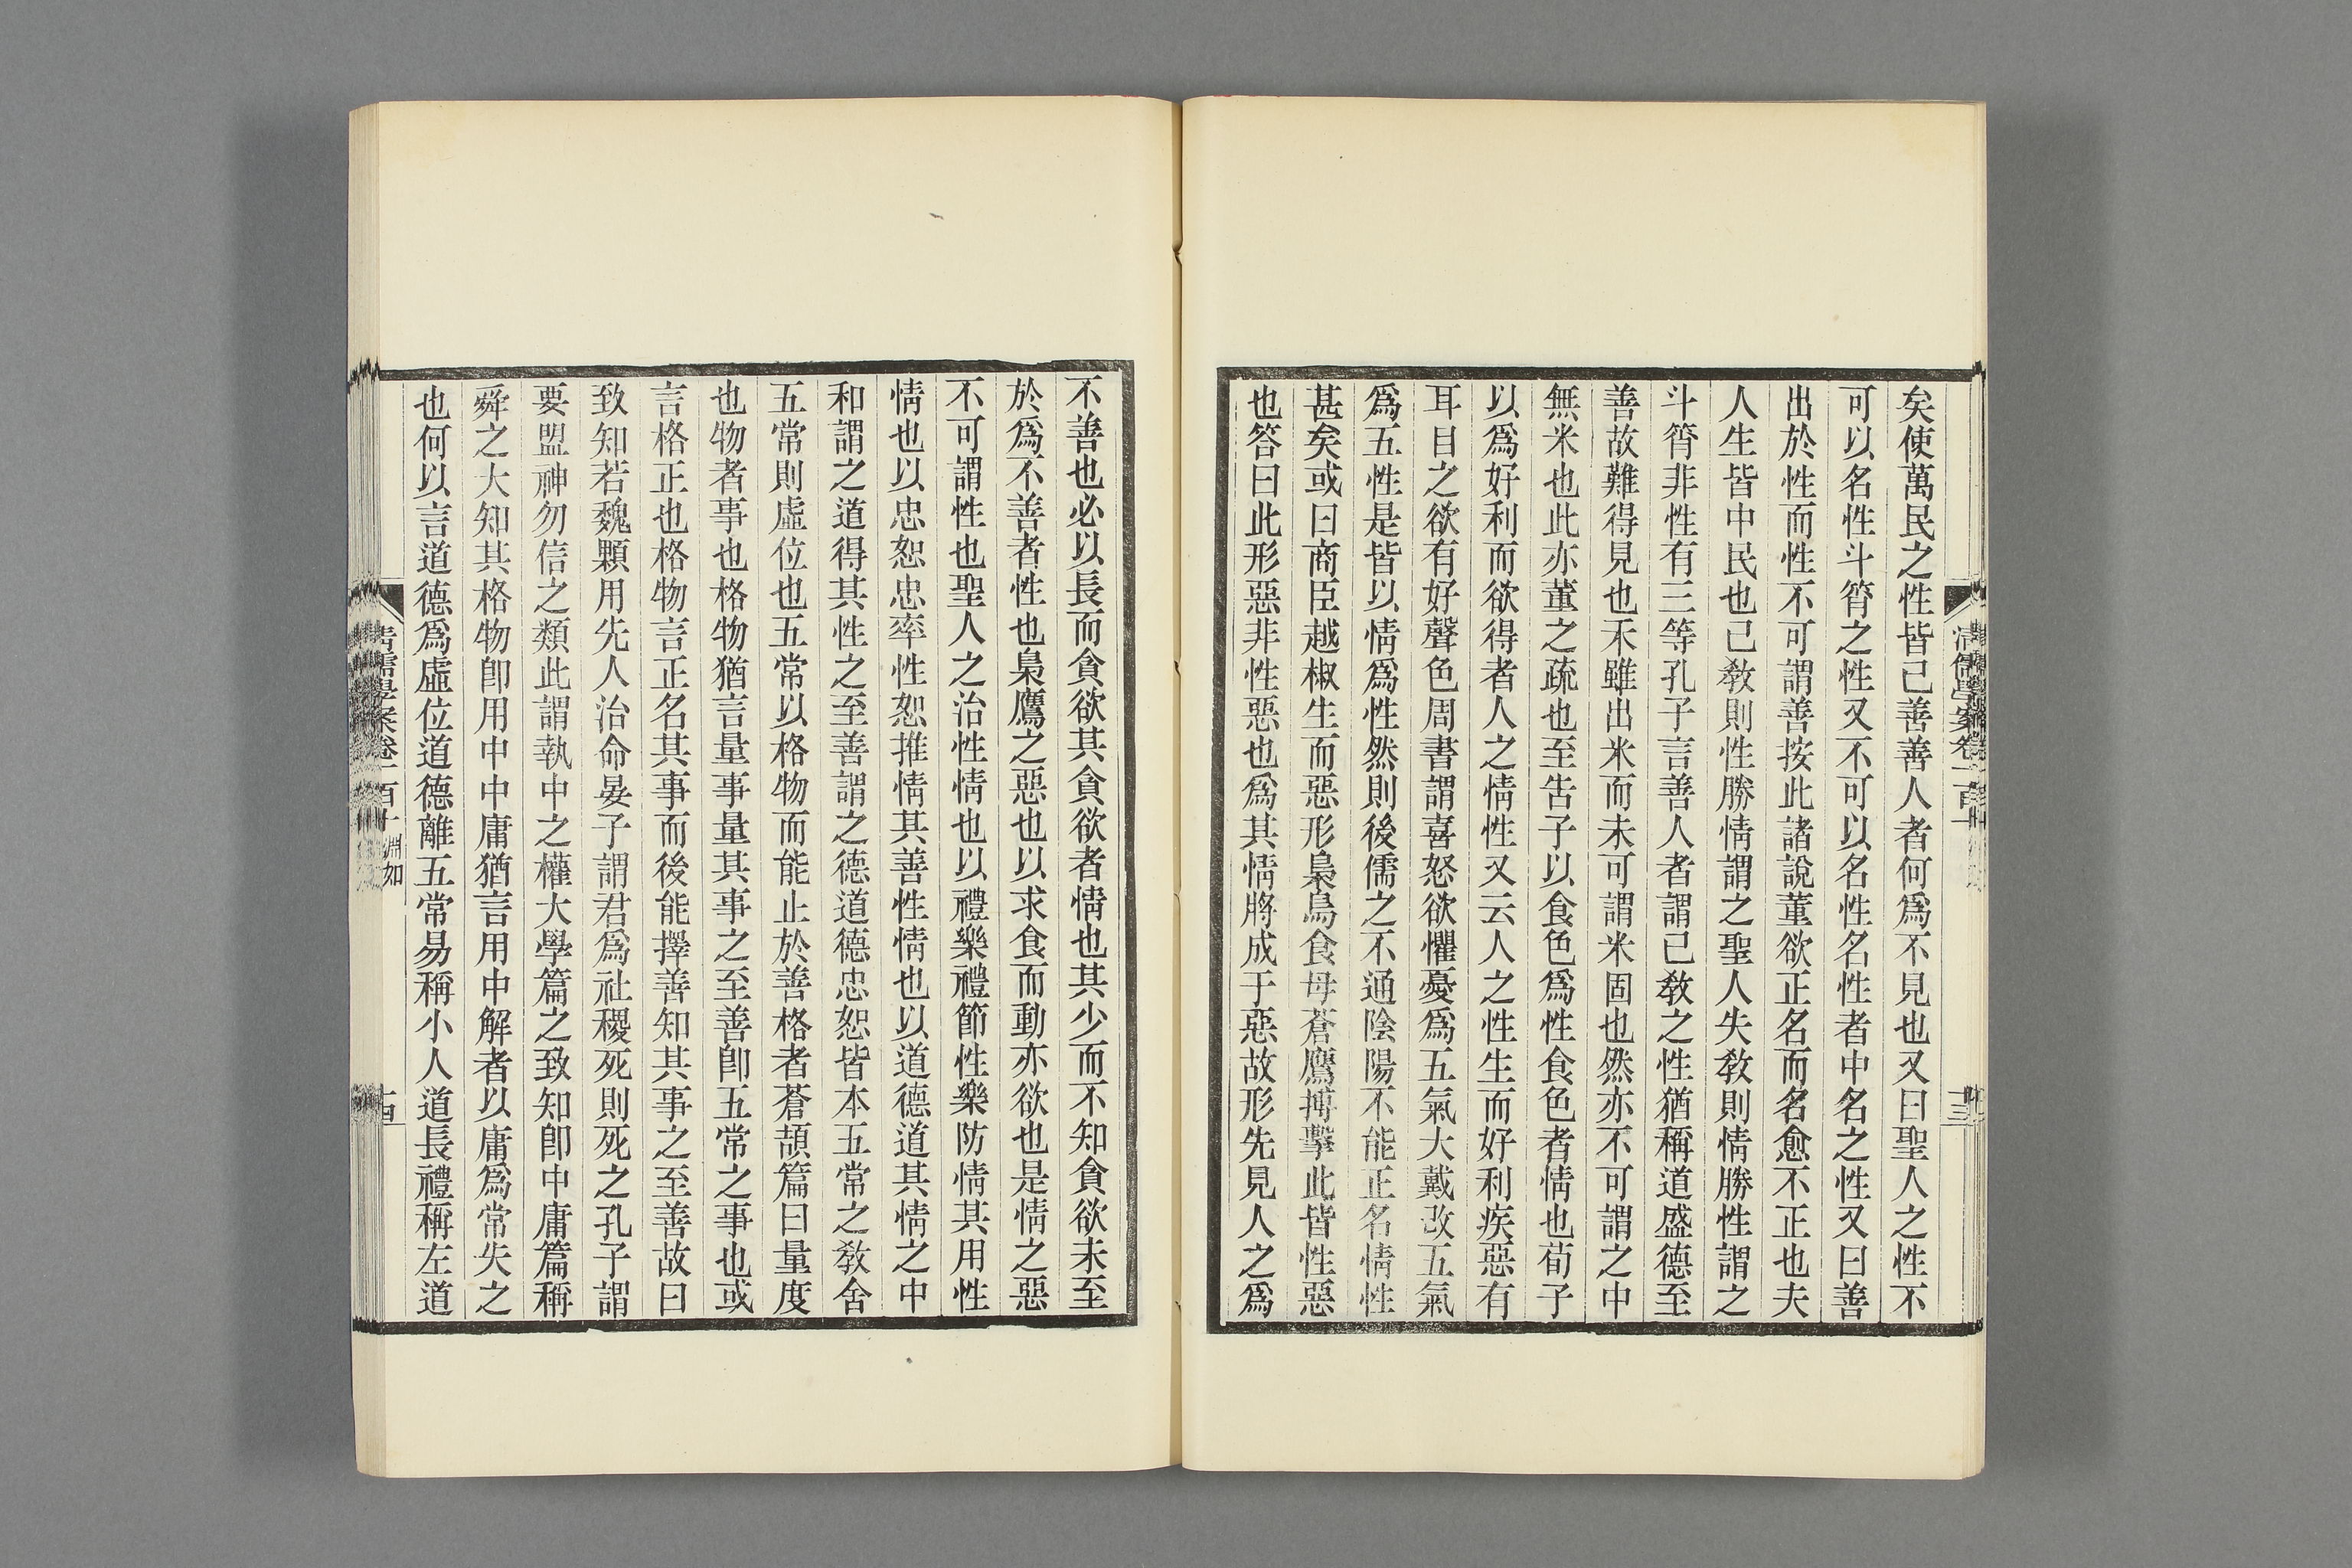 矣使萬民之性皆已善善人者何爲不見也又曰聖人之性不
可以名性斗筲之性又不可以名性名性者中名之性又曰善
出於性而性不可謂善按此諸說董欲正名而名愈不正也夫
人生皆中民也已敎則性勝情謂之聖人失敎則情勝性謂之
斗筲非性有三等孔子言善人者謂已敎之性猶稱道盛德至
善故難得見也禾雖出米而未可謂米固也然亦不可謂之中
無米也此亦董之疏也至吿子以食色爲性食色者情也荀子
以爲好利而欲得者人之情性又云人之性生而好利疾惡有
耳目之欲有好聲色周書謂喜怒欲懼憂爲五氣大戴改五氣
爲五性是皆以情爲性然則後儒之不通陰陽不能正名情性
甚矣或曰商臣越椒生而惡形梟鳥食母蒼鷹搏擊此皆性惡
也答曰此形惡非性惡也爲其情將成于惡故形先見人之爲
不善也必以長而貪欲其貪欲者情也其少而不知貪欲未至
於爲不善者性也梟鷹之惡也以求食而動亦欲也是情之惡
不可謂性也聖人之治性情也以禮樂禮節性樂防情其用性
情也以忠恕忠率性恕推情其善性情也以道德道其情之中
和謂之道得其性之至善謂之德道德忠恕皆本五常之敎舍
五常則虛位也五常以格物而能止於善格者蒼頡篇曰量度
也物者事也格物猶言量事量其事之至善卽五常之事也或
言格正也格物言正名其事而後能擇善知其事之至善故曰
致知若魏顆用先人治命晏子謂君爲社稷死則死之孔子謂
要盟神勿信之類此謂執中之權大學篇之致知卽中庸篇稱
舜之大知其格物卽用中中庸猶言用中解者以庸爲常失之
也何以言道德爲虛位道德離五常易稱小人道長禮稱左道
清儒學案卷一百十 淵如